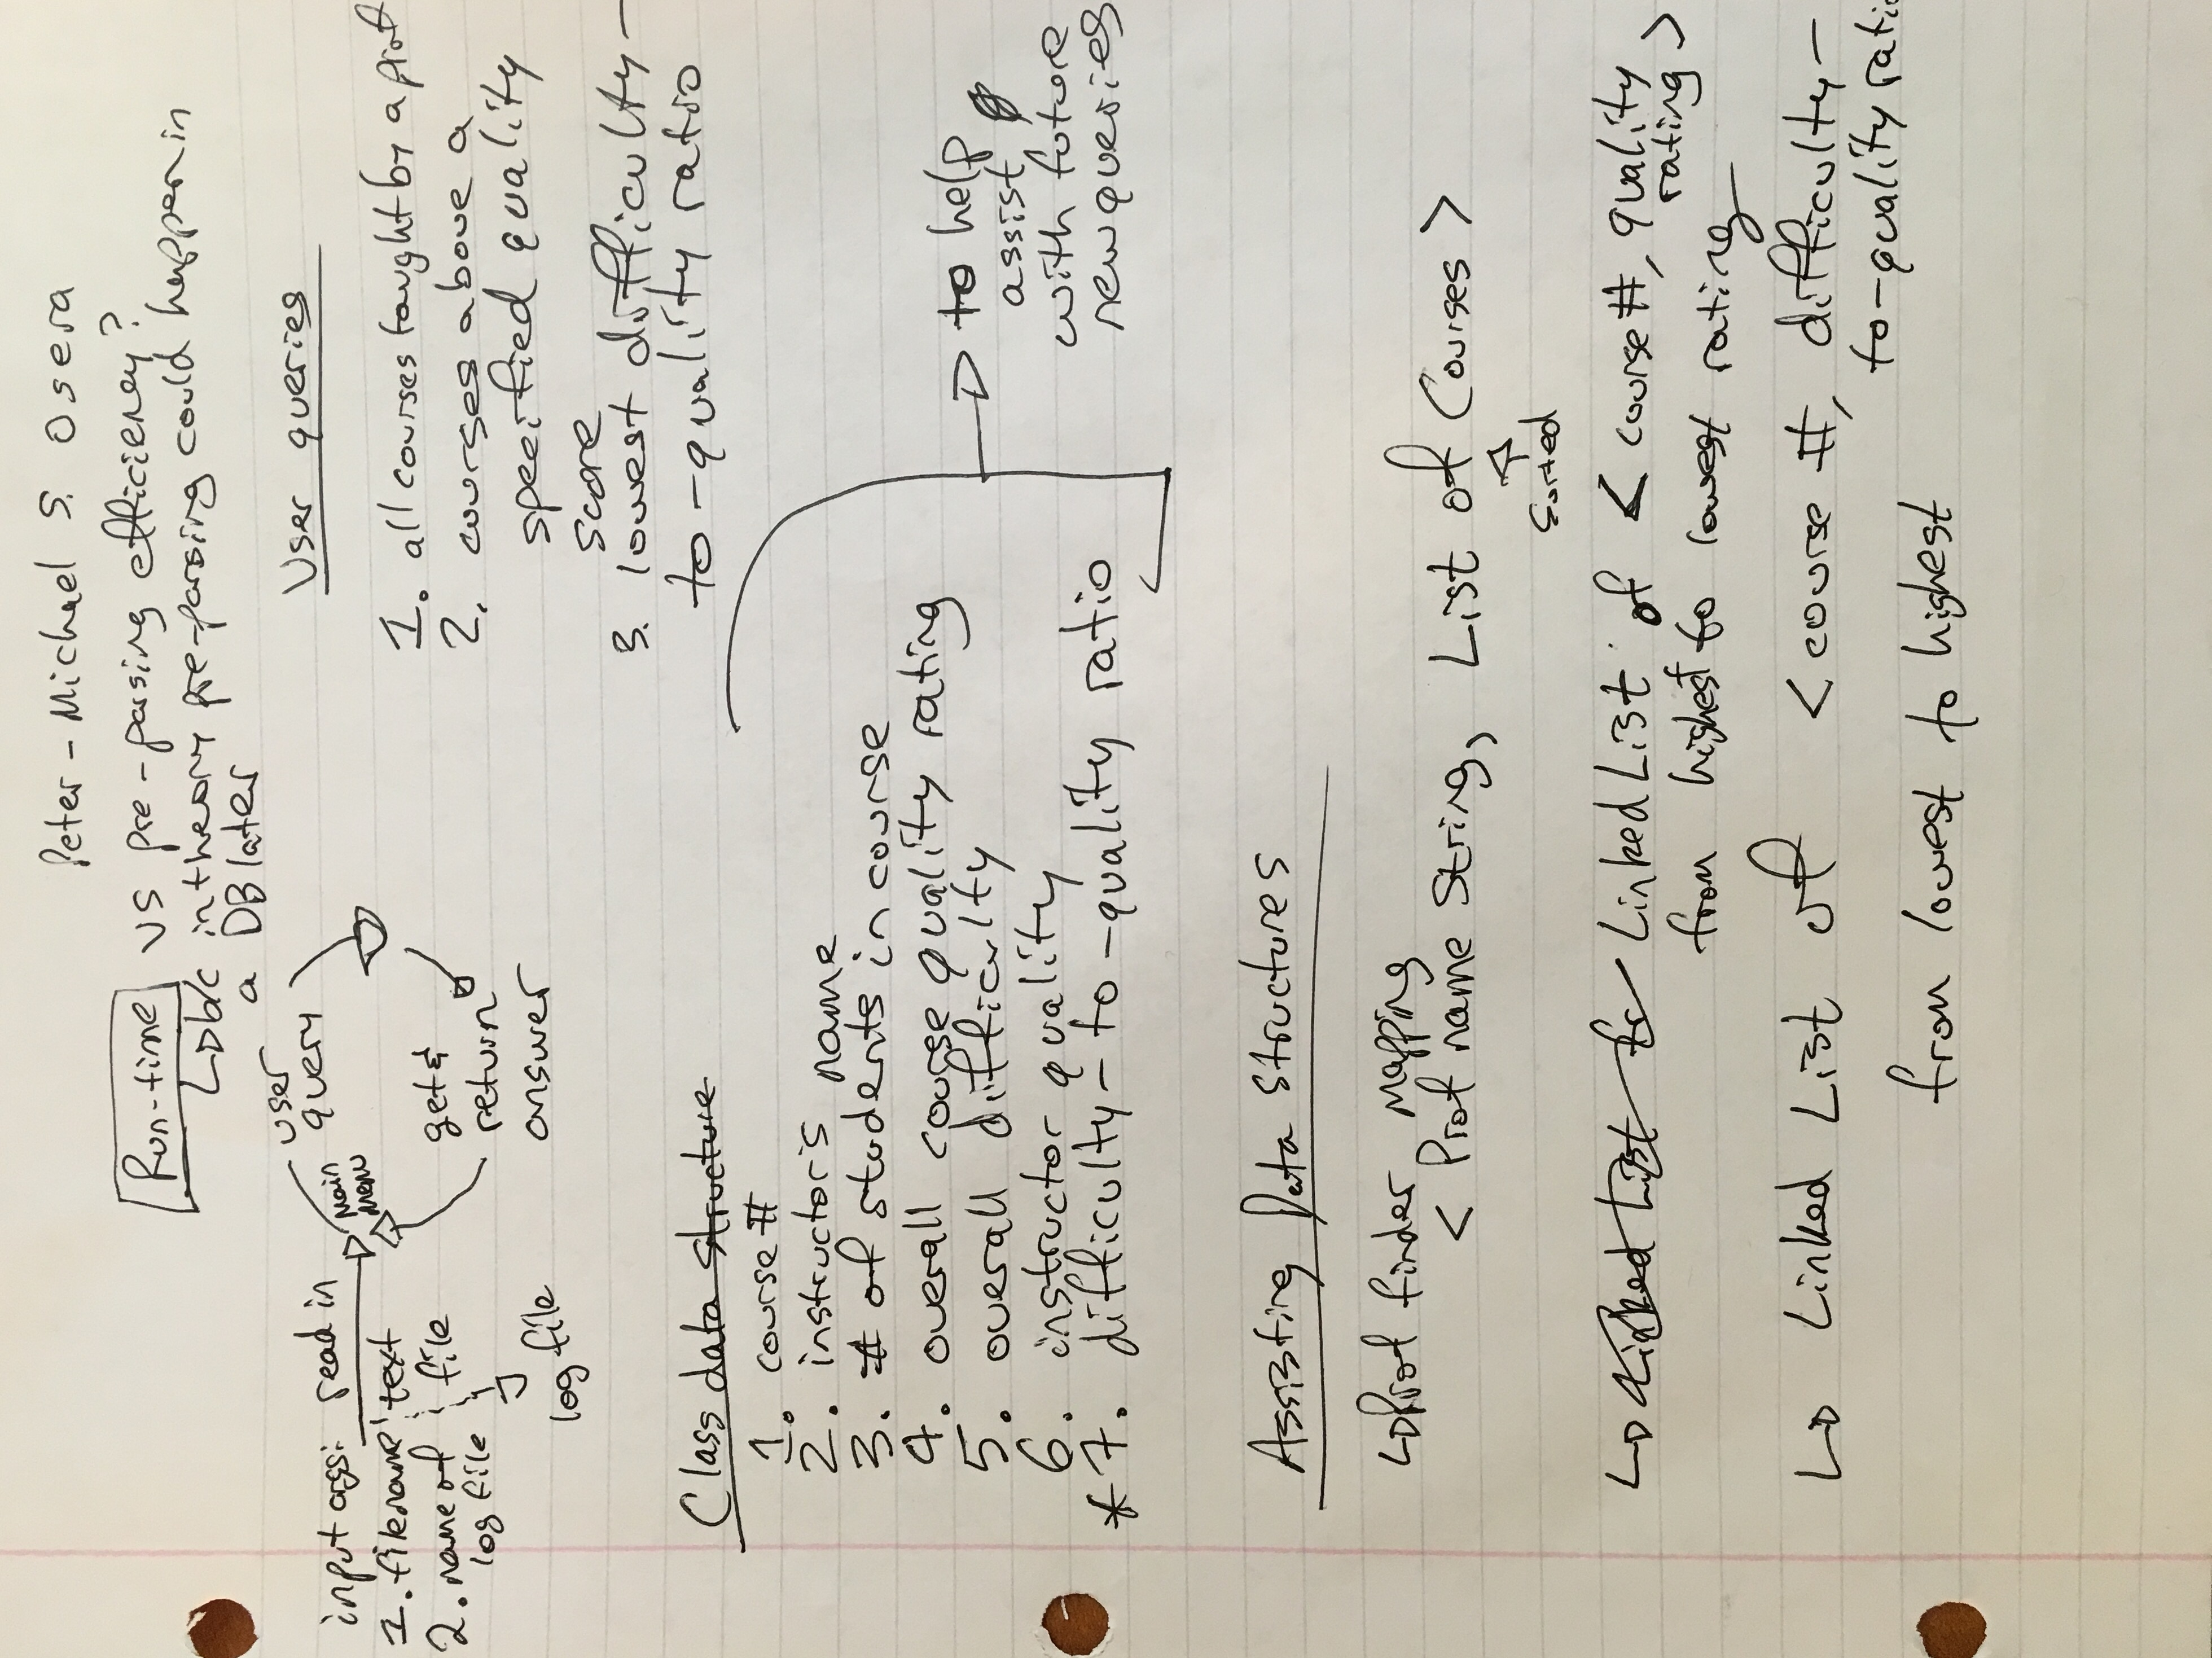 Peter-Michael S. Osera
Run-time vs pre-parsing efficiency?
b/c in theory pre-parsing could happen in
a DB later
input args:
1. filename
2. name of
log file
read in
text
file
log file
main
menu
user
query
get &
return
answer
User queries
1. all courses taught by a prof
2. courses above a
specified quality
score
3. lowest difficulty-
to-quality ratio
Class data structure
1. course #
2. instructor's name
3. # of students in course
4. overall course quality rating
5. overall difficulty
6. instructor quality
* 7. difficulty-to-quality ratio
to help
assist
with future
new queries
Assisting Data Structures
Prof finder mapping
< Prof name String, List of Courses >
sorted
Linked List for Linked List of < course #, quality
rating >
from highest to lowest rating
Linked List of < course #, difficulty-
to-quality ratio
from lowest to highest